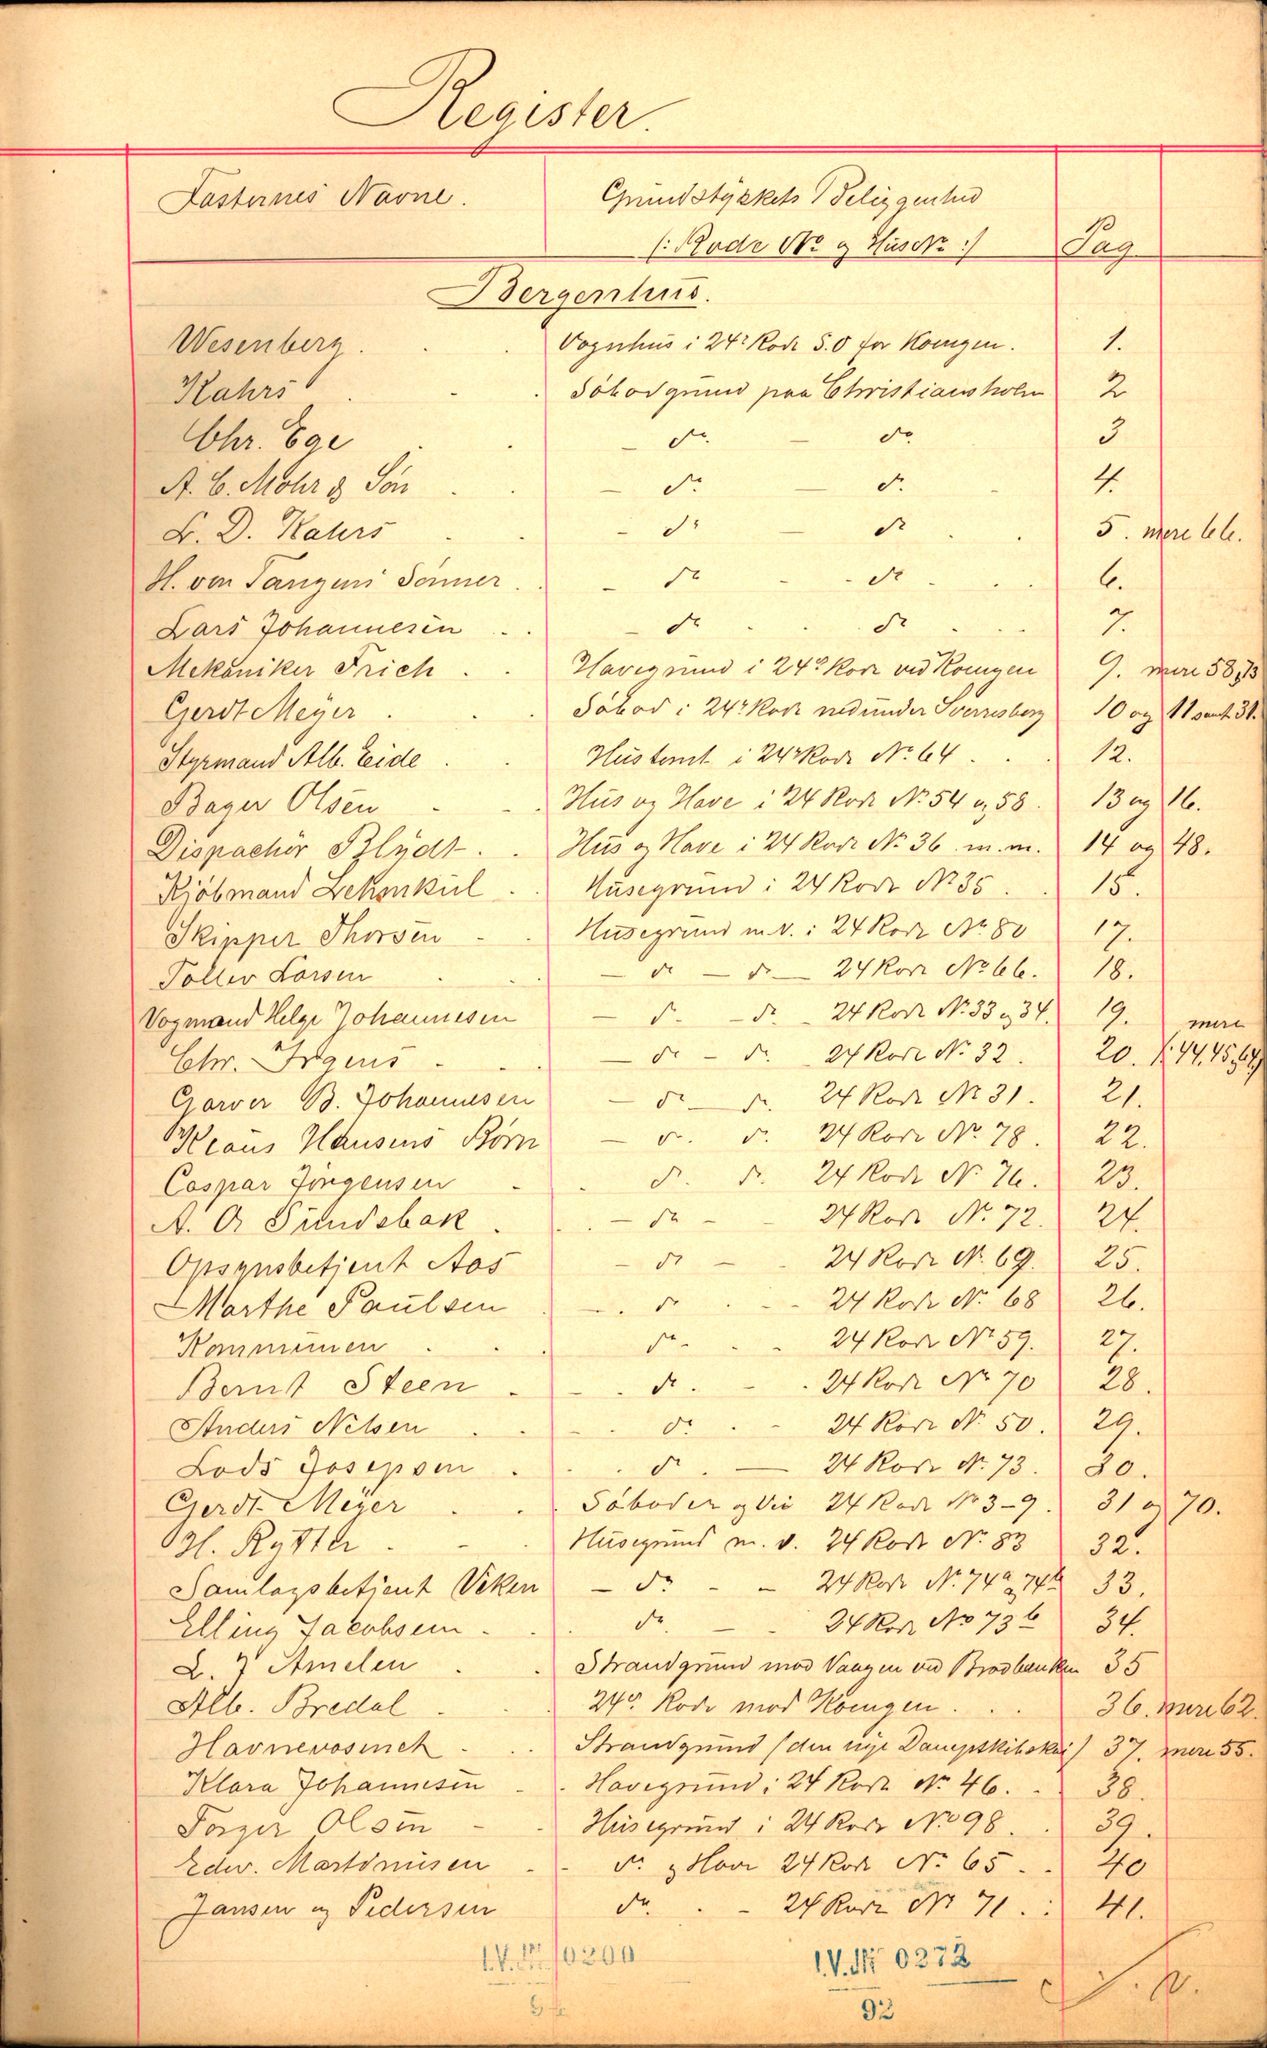 Register.
Fæsternes Navne. Grundstykkets Beliggenhed
(: Rode No og HusNo :) Pag
Bergenhus.
Wesenberg. Vognhus i 24r Rode S.O for Kongen. 1.
Kahrs Söbodgrund paa Christiansholm 2
Chr. Ege - do. - do. 3
A. C. Mohr & Sön - do. - do. 4.
L. D. Kahrs - do - do 5. mere 66.
H. von Tangens Sönner. - do - do 6.
Lars Johannesen - do do 7.
Mekaniker Frich Havegrund i 24de Rode ved Kongen 9. mere 58, 73
Gerdt Meyer Söbod i 24r Rode nedunder Sverresberg 10 og 11 samt 31.
Styrmand Alb. Eide Hustomt i 24r Rode No 64 12.
Bager Olsen Hus og Have i 24 Rode No 54 og 58. 13 og 16.
Dispachör Blydt Hus og Have i 24 Rode No 36 m.m. 14 og 48.
Kjöbmand Lehmkul Husegrund i 24 Rode No 35 15.
Skipper Thorsen Husegrund m.v. i 24 Rode No 80 17.
Toller Larsen - do - do - 24 Rode No 66. 18.
Vogmand Helge Johannesen - do. - do. - 24 Rode No 33 og 34. 19. mere
Chr. Irgens - do - do. 24 Rode No 32. 20. /: 44, 45 og 64/
Garver B. Johannesen - do - do. 24 Rode No 31. 21.
Klaus Hansens Börn - do. do. 24 Rode No 78. 22.
Caspar Jörgensen do. do. 24 Rode No 76. 23.
A. O Sundsbak - do - 24 Rode No. 72. 24.
Opsynsbetjent Aas - do - 24 Rode No. 69. 25.
Marthe Paulsen - do 24 Rode No 68 26.
Kommunen do - 24 Rode No 59. 27.
Bernt Steen - do. - 24 Rode No 70 28.
Anders Nilsen do. - 24 Rode No 50. 29.
Lods Josepsen do. - 24 Rode No. 73. 30.
Gerdt Meyer Söboder 24 Rode No 3-9. 31 og 70.
H. Rytter Husegrund m. v. 24 Rode No 83 32.
Samlagsbetjent Veken - do - - 24 Rode No. 74a og 74b 33.
Elling Jacobsen do. - 24 Rode No 73b 34.
L. J Amelen Strandgrund mod Vaagen ved Bradbænken 35
Alb. Bredal 24de Rode mod Kongen 36. mere 62.
Havnevæsenet Strandgrund (den nye Dampskibskai) 37. mere 55.
Klara Johannesen Havegrund i 24 Rode No 46. 38.
Torger Olsen Husegrund i 24 Rode No 98. 39.
Edw. Martinusen do. og Have 24 Rode No 65. 40
Jansen og Pedersen do. - 24 Rode No 71. 41.
I.V.No 0200 I.V.No 0272
92